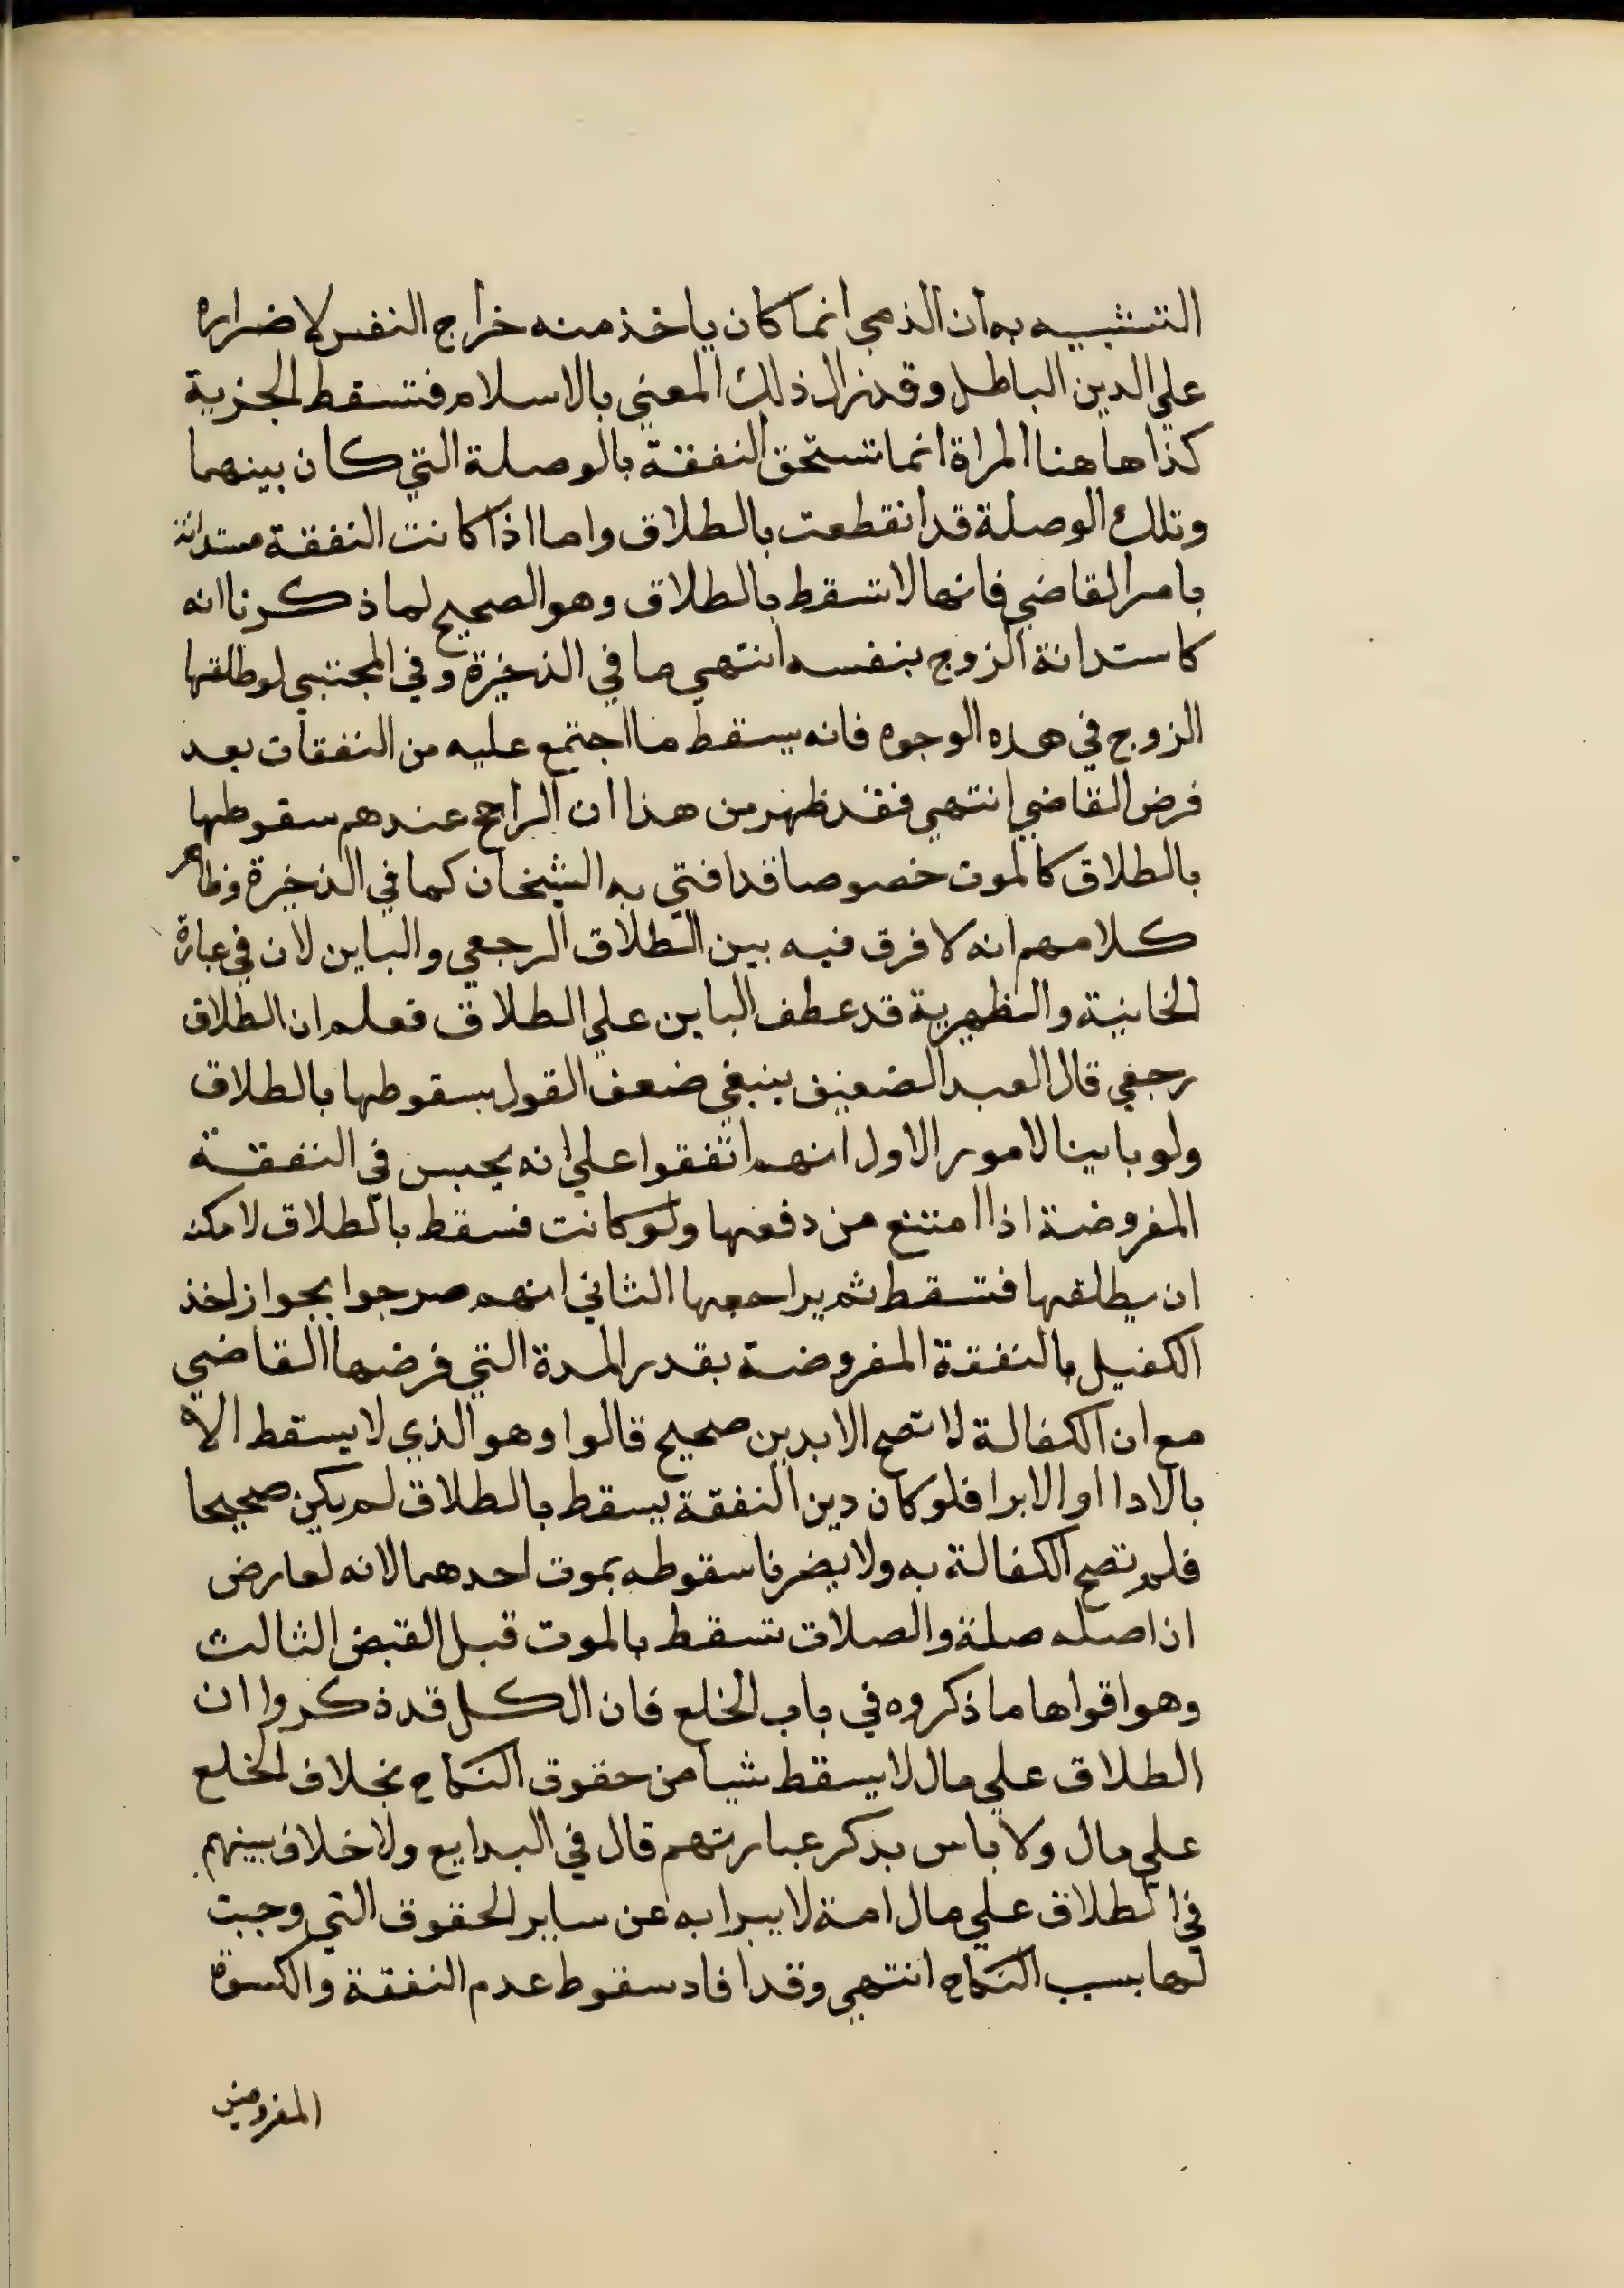 التشبيه به ان الذمي انما كان ياخذ منه خراج النفس لاضراره
علي الدين الباطل وقد زال ذلك المعني بالاسلام فتسقط الجزية
كذا هاهنا المراة انما تستحق النفقة بالوصلة التي كان بينهما
وتلك الوصلة قد انقطعت بالطلاق واما اذا كانت النفقة مستدانة
بامر القاضي فانها لا تسقط بالطلاق وهو الصحيح لما ذكرنا انه
كاستدانة الزوج بنفسه انتهي ما في الذخيرة وفي المجتبي لو طلقها
الزوج في هذه الوجوه فانه يسقط ما اجتمع عليه من النفقات بعد
فرض القاضي انتهي فقد ظهر من هذا ان الراجح عندهم سقوطها
بالطلاق كالموت خصوصا قد افتي به الشيخان كما في الذخيرة وظاهر
كلامهم انه لا فرق فيه بين الطلاق الرجعي والباين لان في عبارة
الخانية والظهيرية قد عطف الباين علي الطلاق فعلم ان الطلاق
رجعي قال العبد الضعيف ينبغي ضعف القول بسقوطها بالطلاق
ولو باينا لامور الاول انهم اتفقوا علي انه يحبس في النفقة
المفروضة اذا امتنع من دفعها ولو كانت فسقط بالطلاق لامكنه
ان يطلقها فتسقط ثم يراجعها الثاني انهم صرحوا بجواز اخذ
الكفيل بالنفقة المفروضة بقدر المدة التي فرضها القاضي
مع ان الكفالة لا تصح الا بدين صحيح قالوا وهو الذي لا يسقط الا
بالادا او الابرا فلو كان دين النفقة يسقط بالطلاق لم يكن صحيحا
فلم تصح الكفالة به ولا يضرنا سقوطه بموت احدهما لانه لعارض
ان اصله صلة والصلات تسقط بالموت قبل القبض الثالث
وهو اقواها ما ذكروه في باب الخلع فان الكل قد ذكروا ان
الطلاق علي مال لا يسقط شيا من حقوق النكاح بخلاف الخلع
علي مال ولا باس بذكر عبارتهم قال في البدايع ولا خلاف بينهم
في الطلاق علي مال انه لا يبرا به عن ساير الحقوق التي وجبت
لها بسبب النكاح انتهي وقد افاد سقوط عدم النفقة والكسوة
المفروضين